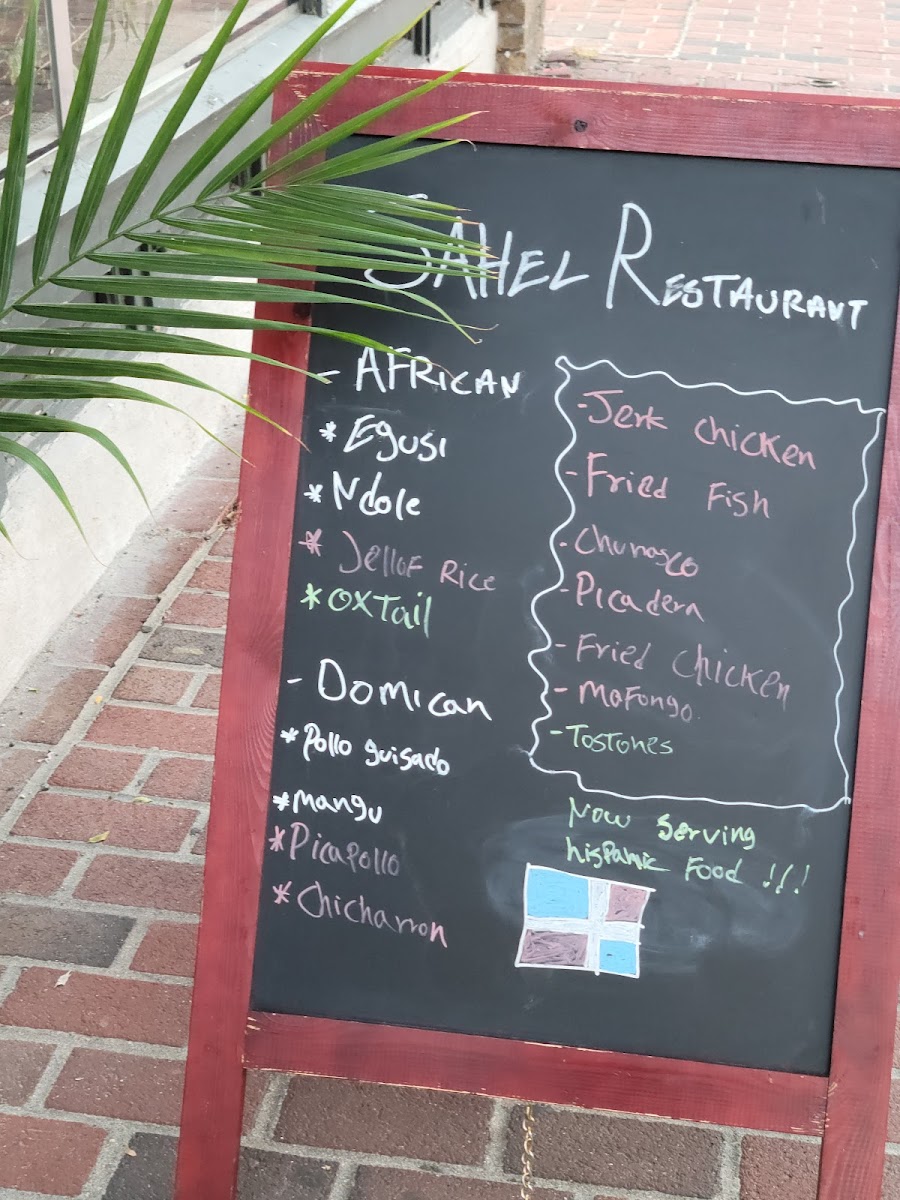 SAHEL RESTAURANT
- AFRICAN
* Egusi
* Ndole
* Jellof Rice
* OXTail
- Domican
* Pollo guisado
* mangu
* Picapollo
* Chicharron
- Jerk chicken
- Fried Fish
- Churrasco
- Picadera
- Fried Chicken
- Mafongo
- Tostones
Now Serving
hispanic Food !!!